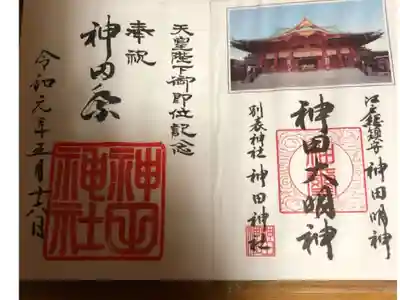 江戸總鎮守 神田明神
神田大明神
別表神社 神田神社
天皇陛下御即位記念
奉祝
神田祭
神田神社
令和元年五月十八日